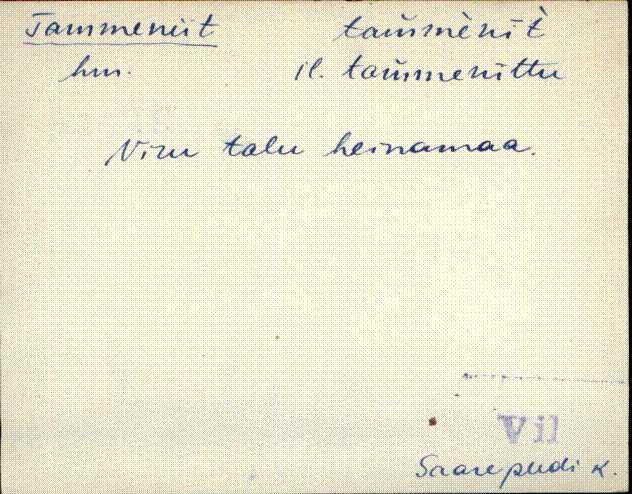 Tammeniit tam̆mèni̮t̀
hm. il. tam̆menittu
Viru talu heinamaa.
Vil
Saarepuidi k.